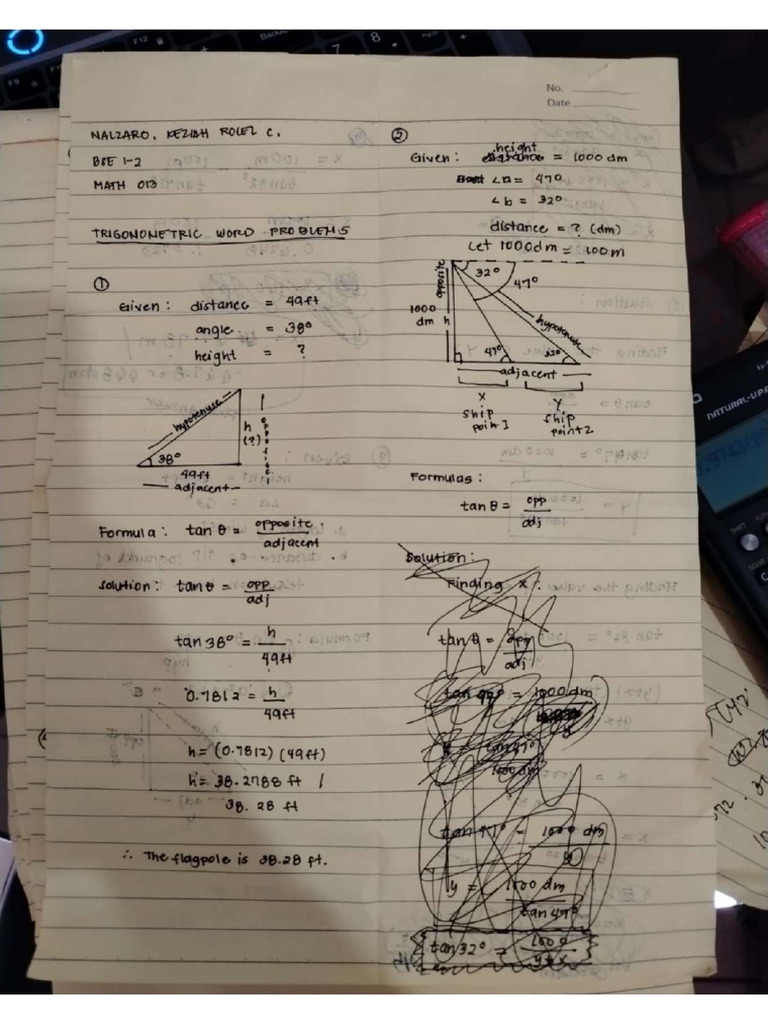 No.
Date
NALZARO, KEZIAH ROLEZ C.
BSE 1-2
MATH 013
TRIGONOMETRIC WORD PROBLEMS
①
Given: distance = 49ft
angle = 38°
height = ?
hypotenuse
h
(?)
opposite
38°
49ft
adjacent
Formula: tan θ = opposite / adjacent
Solution: tan θ = opp / adj
tan 38° = h / 49ft
0.7812 = h / 49ft
h = (0.7812) (49ft)
h = 38.2788 ft /
38.28 ft
∴ The flagpole is 38.28 ft.
②
height
Given: distance = 1000 dm
∠a = 47°
∠b = 32°
distance = ? (dm)
Let 1000dm = 100m
opposite
32°
47°
1000
dm h
hypotenuse
47°
32°
adjacent
X
ship
point 1
Y
ship
point 2
Formulas:
tan θ = opp / adj
Solution:
Finding x:
tan θ = opp / adj
tan 47° = 1000 dm
tan 47°
1000dm
tan 47° = 1000 dm / y
y = 1000 dm / tan 47°
tan 32° = 1000 / y+x
NATURAL-V.P.A
SHIFT